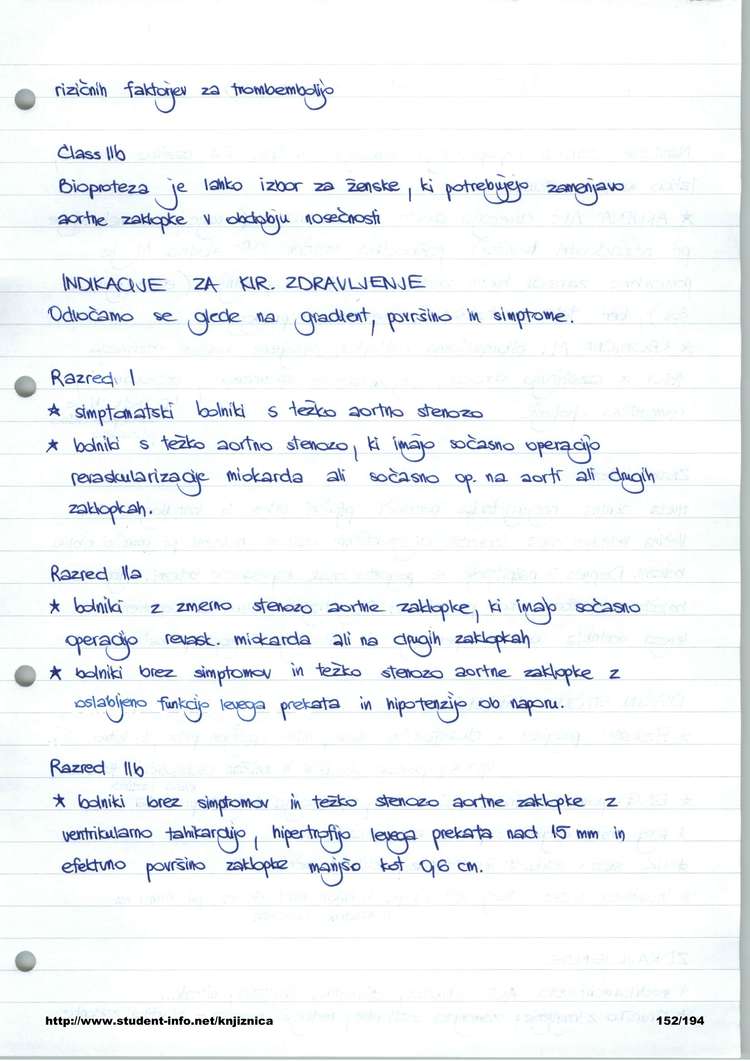 rizičnih faktorjev za trombembolijo
Class IIb
Bioproteza je lahko izbor za ženske, ki potrebujejo zamenjavo
aortne zaklopke v obdobju nosečnosti
INDIKACIJE ZA KIR. ZDRAVLJENJE
Odločamo se glede na gradient, površino in simptome.
Razred I
* simptomatski bolniki s težko aortno stenozo
* bolniki s težko aortno stenozo, ki imajo sočasno operacijo
revaskularizacije miokarda ali sočasno op. na aorti ali drugih
zaklopkah.
Razred IIa
* bolniki z zmerno stenozo aortne zaklopke, ki imajo sočasno
operacijo revask. miokarda ali na drugih zaklopkah
* bolniki brez simptomov in težko stenozo aortne zaklopke z
oslabljeno funkcijo levega prekata in hipotenzijo ob naporu.
Razred IIb
* bolniki brez simptomov in težko stenozo aortne zaklopke z
ventrikularno tahikardijo, hipertrofijo levega prekata nad 15 mm in
efektivno površino zaklopke manjšo kot 0,6 cm.
http://www.student-info.net/knjiznica
152/194